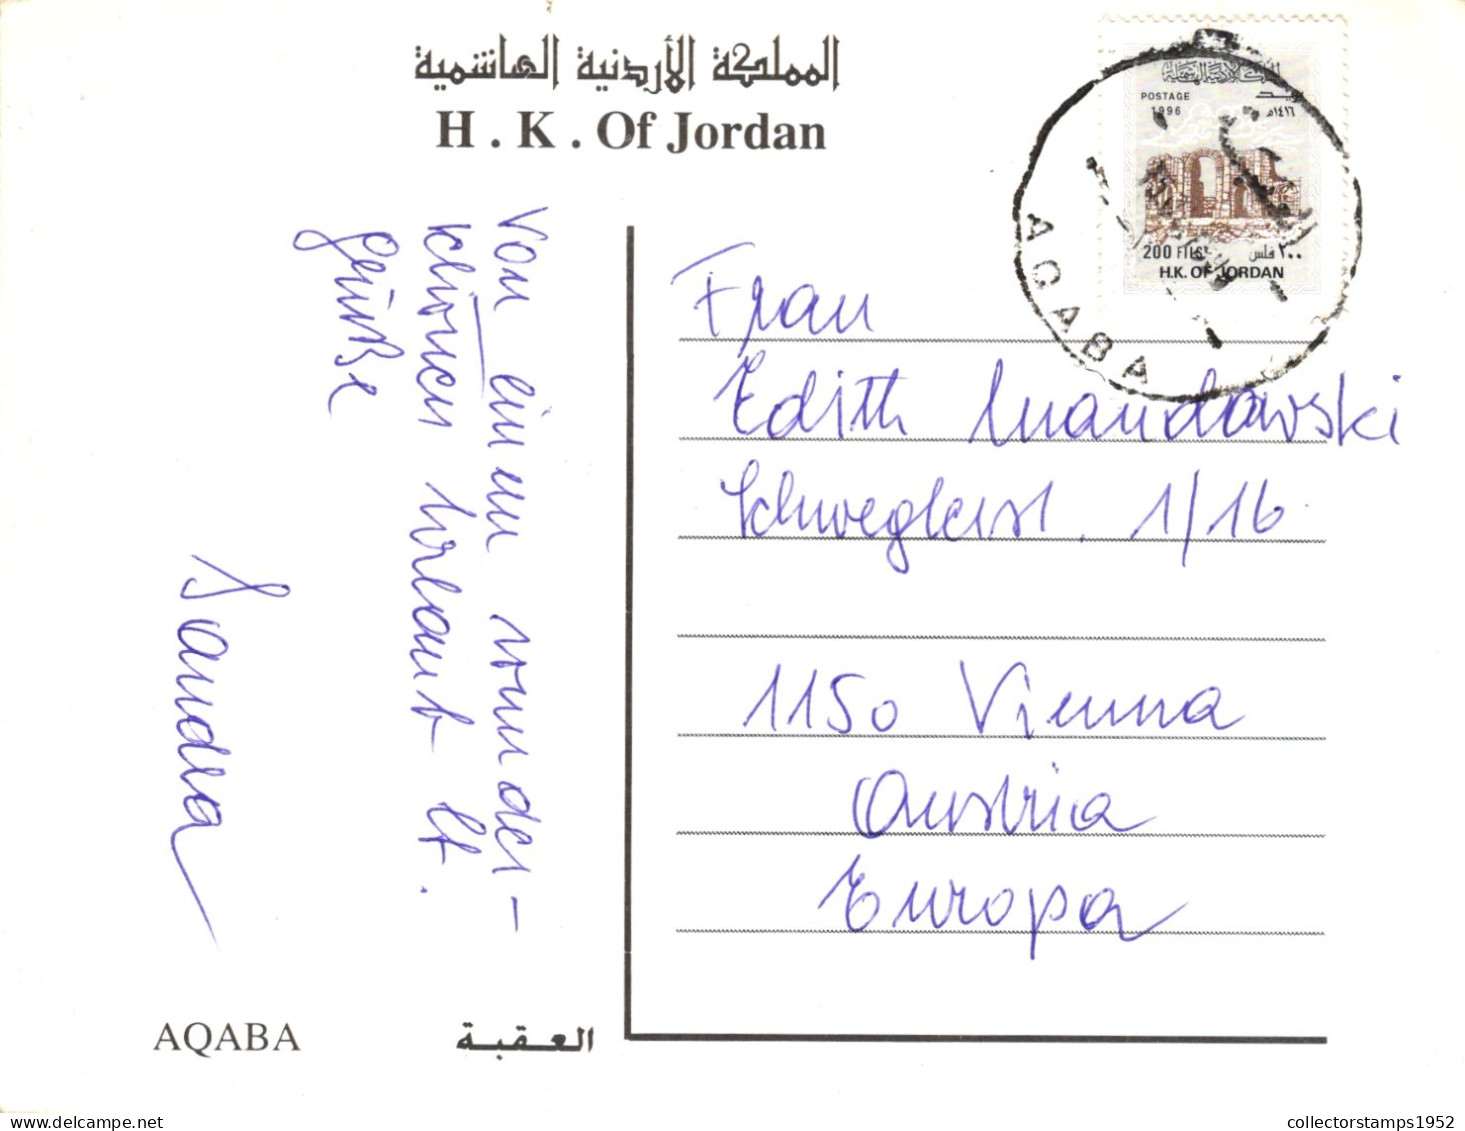 المملكة الأردنية الهاشمية
H . K . Of Jordan
POSTAGE
1996
١٤١٦هـ
بريد
200 FILS
٢٠٠ فلس
H.K. OF JORDAN
العقبة
AQABA
Von einem wunder-
schönen Urlaub lt.
Grüße
Sandra
Frau
Edith
Schweglerst. 1/16
1150 Vienna
Austria
Europa
AQABA
العقبة
collectorstamps1952